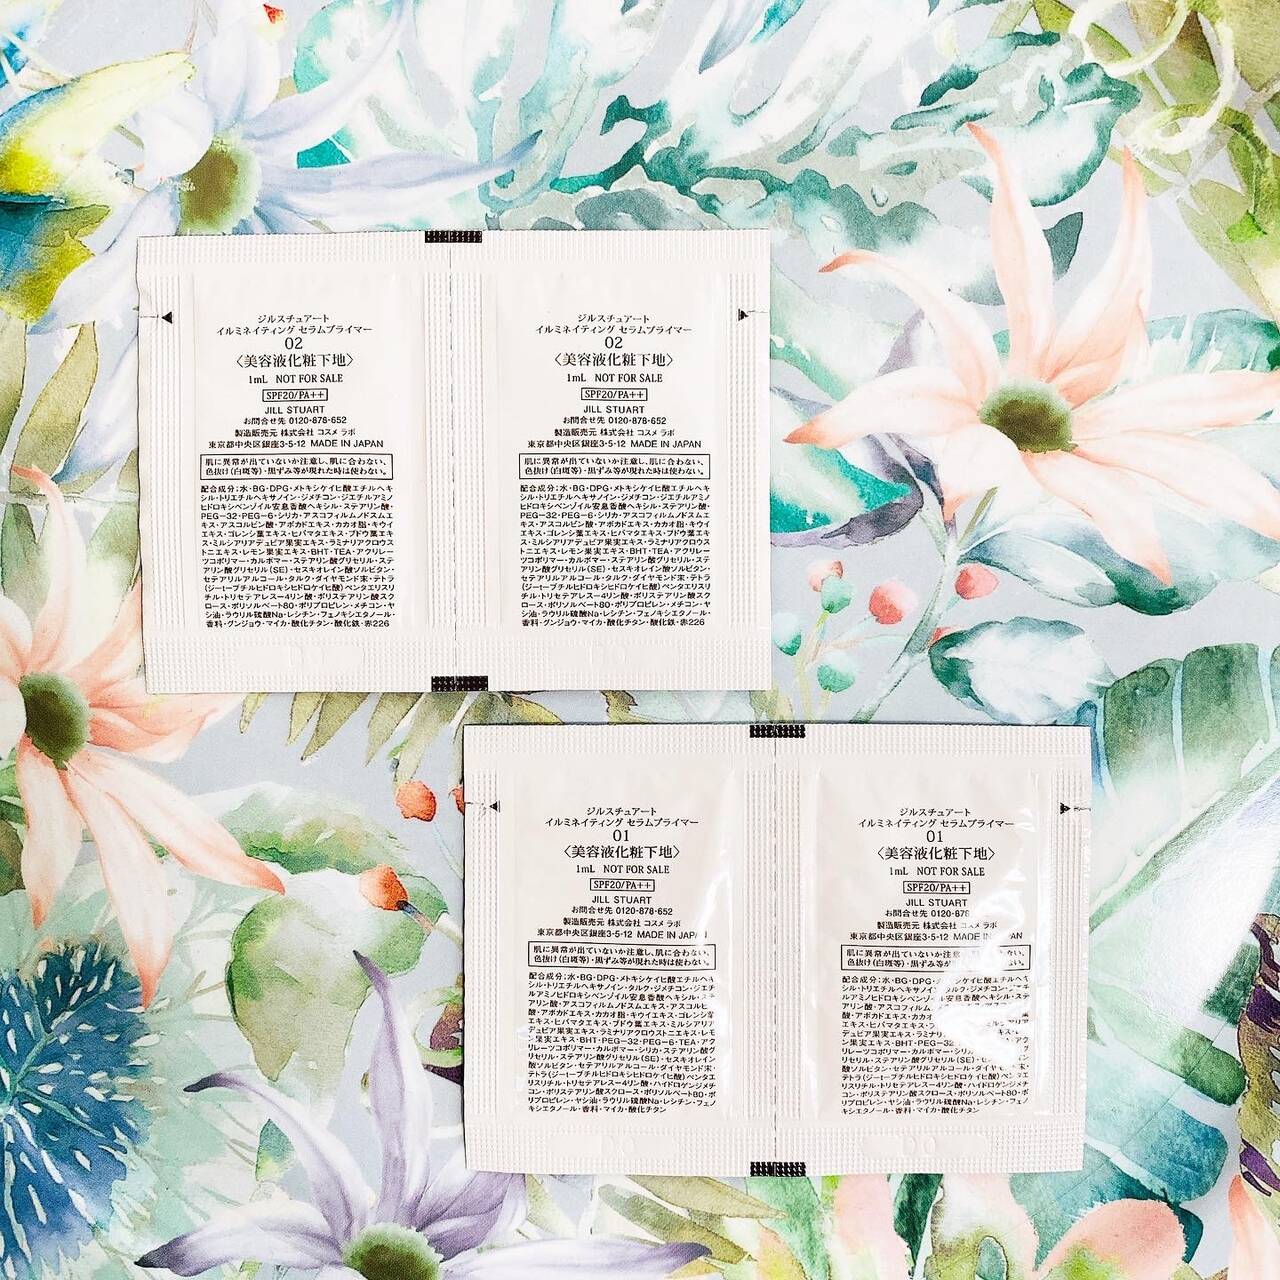 ジルスチュアート
イルミネイティング セラムプライマー
02
〈美容液化粧下地〉
1mL NOT FOR SALE
SPF20/PA++
JILL STUART
お問合せ先 0120-878-652
製造販売元 株式会社 コスメ ラボ
東京都中央区銀座3-5-12 MADE IN JAPAN
肌に異常が出ていないか注意し、肌に合わない、
色抜け(白斑等)・黒ずみ等が現れた時は使わない。
配合成分:水・BG・DPG・メトキシケイヒ酸エチルヘキ
シル・トリエチルヘキサノイン・ジメチコン・ジエチルアミノ
ヒドロキシベンゾイル安息香酸ヘキシル・ステアリン酸・
PEG-32・PEG-6・シリカ・アスコフィルムノドスムエ
キス・アスコルビン酸・アボカドエキス・カカオ脂・キウイ
エキス・ゴレンシ葉エキス・ヒバマタエキス・ブドウ葉エキ
ス・ミルシアリアデュビア果実エキス・ラミナリアクロウス
トニエキス・レモン果実エキス・BHT・TEA・アクリレー
ツコポリマー・カルボマー・ステアリン酸グリセリル・ステ
アリン酸グリセリル(SE)・セスキオレイン酸ソルビタン・
セテアリルアルコール・タルク・ダイヤモンド末・テトラ
(ジ-t-ブチルヒドロキシヒドロケイヒ酸)ペンタエリスリ
チル・トリセテアレス-4リン酸・ポリステアリン酸スク
ロース・ポリソルベート80・ポリプロピレン・メチコン・ヤ
シ油・ラウリル硫酸Na・レシチン・フェノキシエタノール・
香料・グンジョウ・マイカ・酸化チタン・酸化鉄・赤226
ジルスチュアート
イルミネイティング セラムプライマー
02
〈美容液化粧下地〉
1mL NOT FOR SALE
SPF20/PA++
JILL STUART
お問合せ先 0120-878-652
製造販売元 株式会社 コスメ ラボ
東京都中央区銀座3-5-12 MADE IN JAPAN
肌に異常が出ていないか注意し、肌に合わない、
色抜け(白斑等)・黒ずみ等が現れた時は使わない。
配合成分:水・BG・DPG・メトキシケイヒ酸エチルヘキ
シル・トリエチルヘキサノイン・ジメチコン・ジエチルアミノ
ヒドロキシベンゾイル安息香酸ヘキシル・ステアリン酸・
PEG-32・PEG-6・シリカ・アスコフィルムノドスムエ
キス・アスコルビン酸・アボカドエキス・カカオ脂・キウイ
エキス・ゴレンシ葉エキス・ヒバマタエキス・ブドウ葉エキ
ス・ミルシアリアデュビア果実エキス・ラミナリアクロウス
トニエキス・レモン果実エキス・BHT・TEA・アクリレー
ツコポリマー・カルボマー・ステアリン酸グリセリル・ステ
アリン酸グリセリル(SE)・セスキオレイン酸ソルビタン・
セテアリルアルコール・タルク・ダイヤモンド末・テトラ
(ジ-t-ブチルヒドロキシヒドロケイヒ酸)ペンタエリスリ
チル・トリセテアレス-4リン酸・ポリステアリン酸スク
ロース・ポリソルベート80・ポリプロピレン・メチコン・ヤ
シ油・ラウリル硫酸Na・レシチン・フェノキシエタノール・
香料・グンジョウ・マイカ・酸化チタン・酸化鉄・赤226
ジルスチュアート
イルミネイティング セラムプライマー
01
〈美容液化粧下地〉
1mL NOT FOR SALE
SPF20/PA++
JILL STUART
お問合せ先 0120-878-652
製造販売元 株式会社 コスメ ラボ
東京都中央区銀座3-5-12 MADE IN JAPAN
肌に異常が出ていないか注意し、肌に合わない、
色抜け(白斑等)・黒ずみ等が現れた時は使わない。
配合成分:水・BG・DPG・メトキシケイヒ酸エチルヘキ
シル・トリエチルヘキサノイン・タルク・ジメチコン・ジエチ
ルアミノヒドロキシベンゾイル安息香酸ヘキシル・ステ
アリン酸・アスコフィルムノドスムエキス・アスコルビン
酸・アボカドエキス・カカオ脂・キウイエキス・ゴレンシ葉
エキス・ヒバマタエキス・ブドウ葉エキス・ミルシアリア
デュビア果実エキス・ラミナリアクロウストニエキス・レモ
ン果実エキス・BHT・PEG-32・PEG-6・TEA・アク
リレーツコポリマー・カルボマー・シリカ・ステアリン酸グ
リセリル・ステアリン酸グリセリル(SE)・セスキオレイン
酸ソルビタン・セテアリルアルコール・ダイヤモンド末・
テトラ(ジ-t-ブチルヒドロキシヒドロケイヒ酸)ペンタエ
リスリチル・トリセテアレス-4リン酸・ハイドロゲンジメチ
コン・ポリステアリン酸スクロース・ポリソルベート80・ポ
リプロピレン・ヤシ油・ラウリル硫酸Na・レシチン・フェノ
キシエタノール・香料・マイカ・酸化チタン
ジルスチュアート
イルミネイティング セラムプライマー
01
〈美容液化粧下地〉
1mL NOT FOR SALE
SPF20/PA++
JILL STUART
お問合せ先 0120-878
製造販売元 株式会社 コスメ ラボ
東京都中央区銀座3-5-12 MADE IN
肌に異常が出ていないか注意し、肌に合わない、
色抜け(白斑等)・黒ずみ等が 使わない。
配合成分:水・BG・DPG・ シケイヒ酸エチルヘキ
シル・トリエチルヘキサノイン・タルク・ジメチコン・ジエチ
ルアミノヒドロキシベンゾ 安息香酸ヘキシル・ステ
アリン酸・アスコフィルム
酸・アボカドエキス・カカオ
エキス・ヒバマタエキス・
デュビア果実エキス・ラミナリアクロウ
ン果実エキス・BHT・PEG-32・
リレーツコポリマー・カルボマー・シリカ
リセリル・ステアリン酸グリセリル(SE)・セス
酸ソルビタン・セテアリルアルコール・ダイヤモンド末・
テトラ(ジ-t-ブチルヒドロキシヒドロケイヒ酸)ペンタエ
リスリチル・トリセテアレス-4リン酸・ハイドロゲンジメチ
コン・ポリステアリン酸スクロース・ポリソルベート80・ポ
リプロピレン・ヤシ油・ラウリル硫酸Na・レシチン・フェノ
キシエタノール・香料・マイカ・酸化チタン